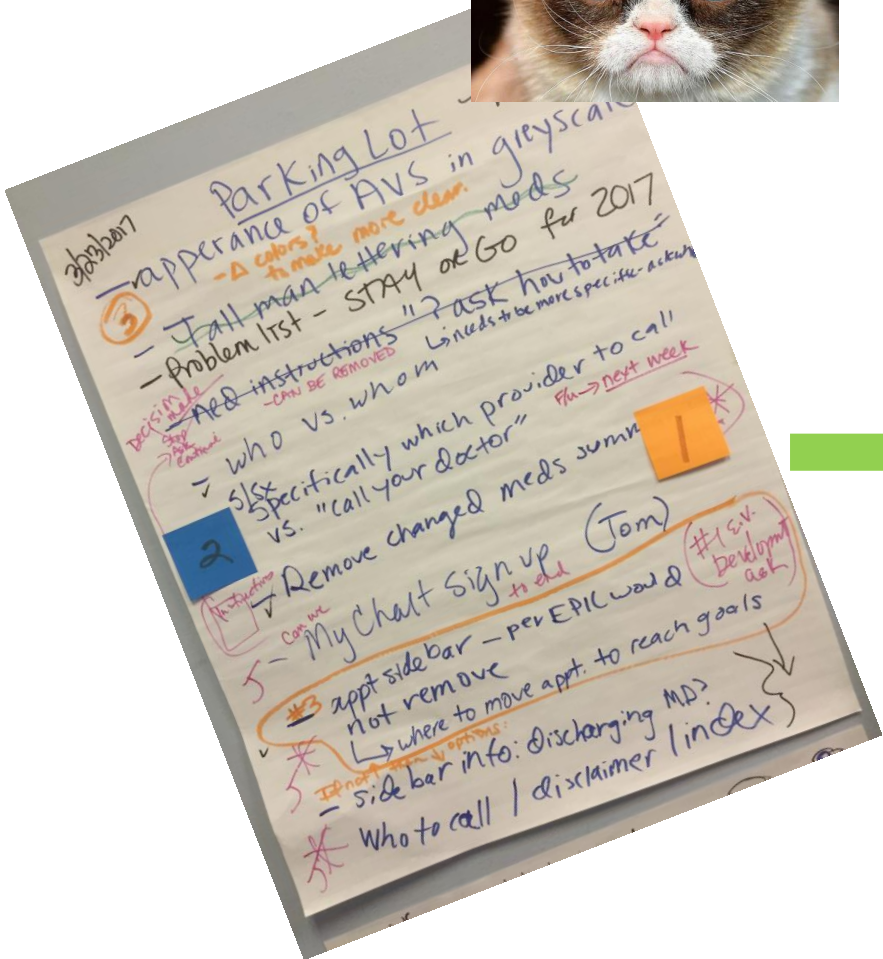 Parking Lot
3/23/2017
- apperance of AVS in greyscale
- Δ colors?
to make more clear.
3
- Tall man lettering meds
- Problem list - STAY or GO for 2017
- Med instructions "? ask how to take"
↳ needs to be more specific - ask
- CAN BE REMOVED
Decision made
Stop
Ask
Continue
- who vs. whom
F/u → next week
s/sx
- Specifically which provider to call
vs. "call your doctor"
1
2
- Remove changed meds summ
Instructions
can we
- My Chart Sign up (Tom)
to end
#1 E.V.
Developmt
ask
#3
- appt sidebar - per EPIC would
not remove
↳ where to move appt. to reach goals
If not ↑ then ↓ options:
- sidebar info: discharging MD?
Who to call / disclaimer / index